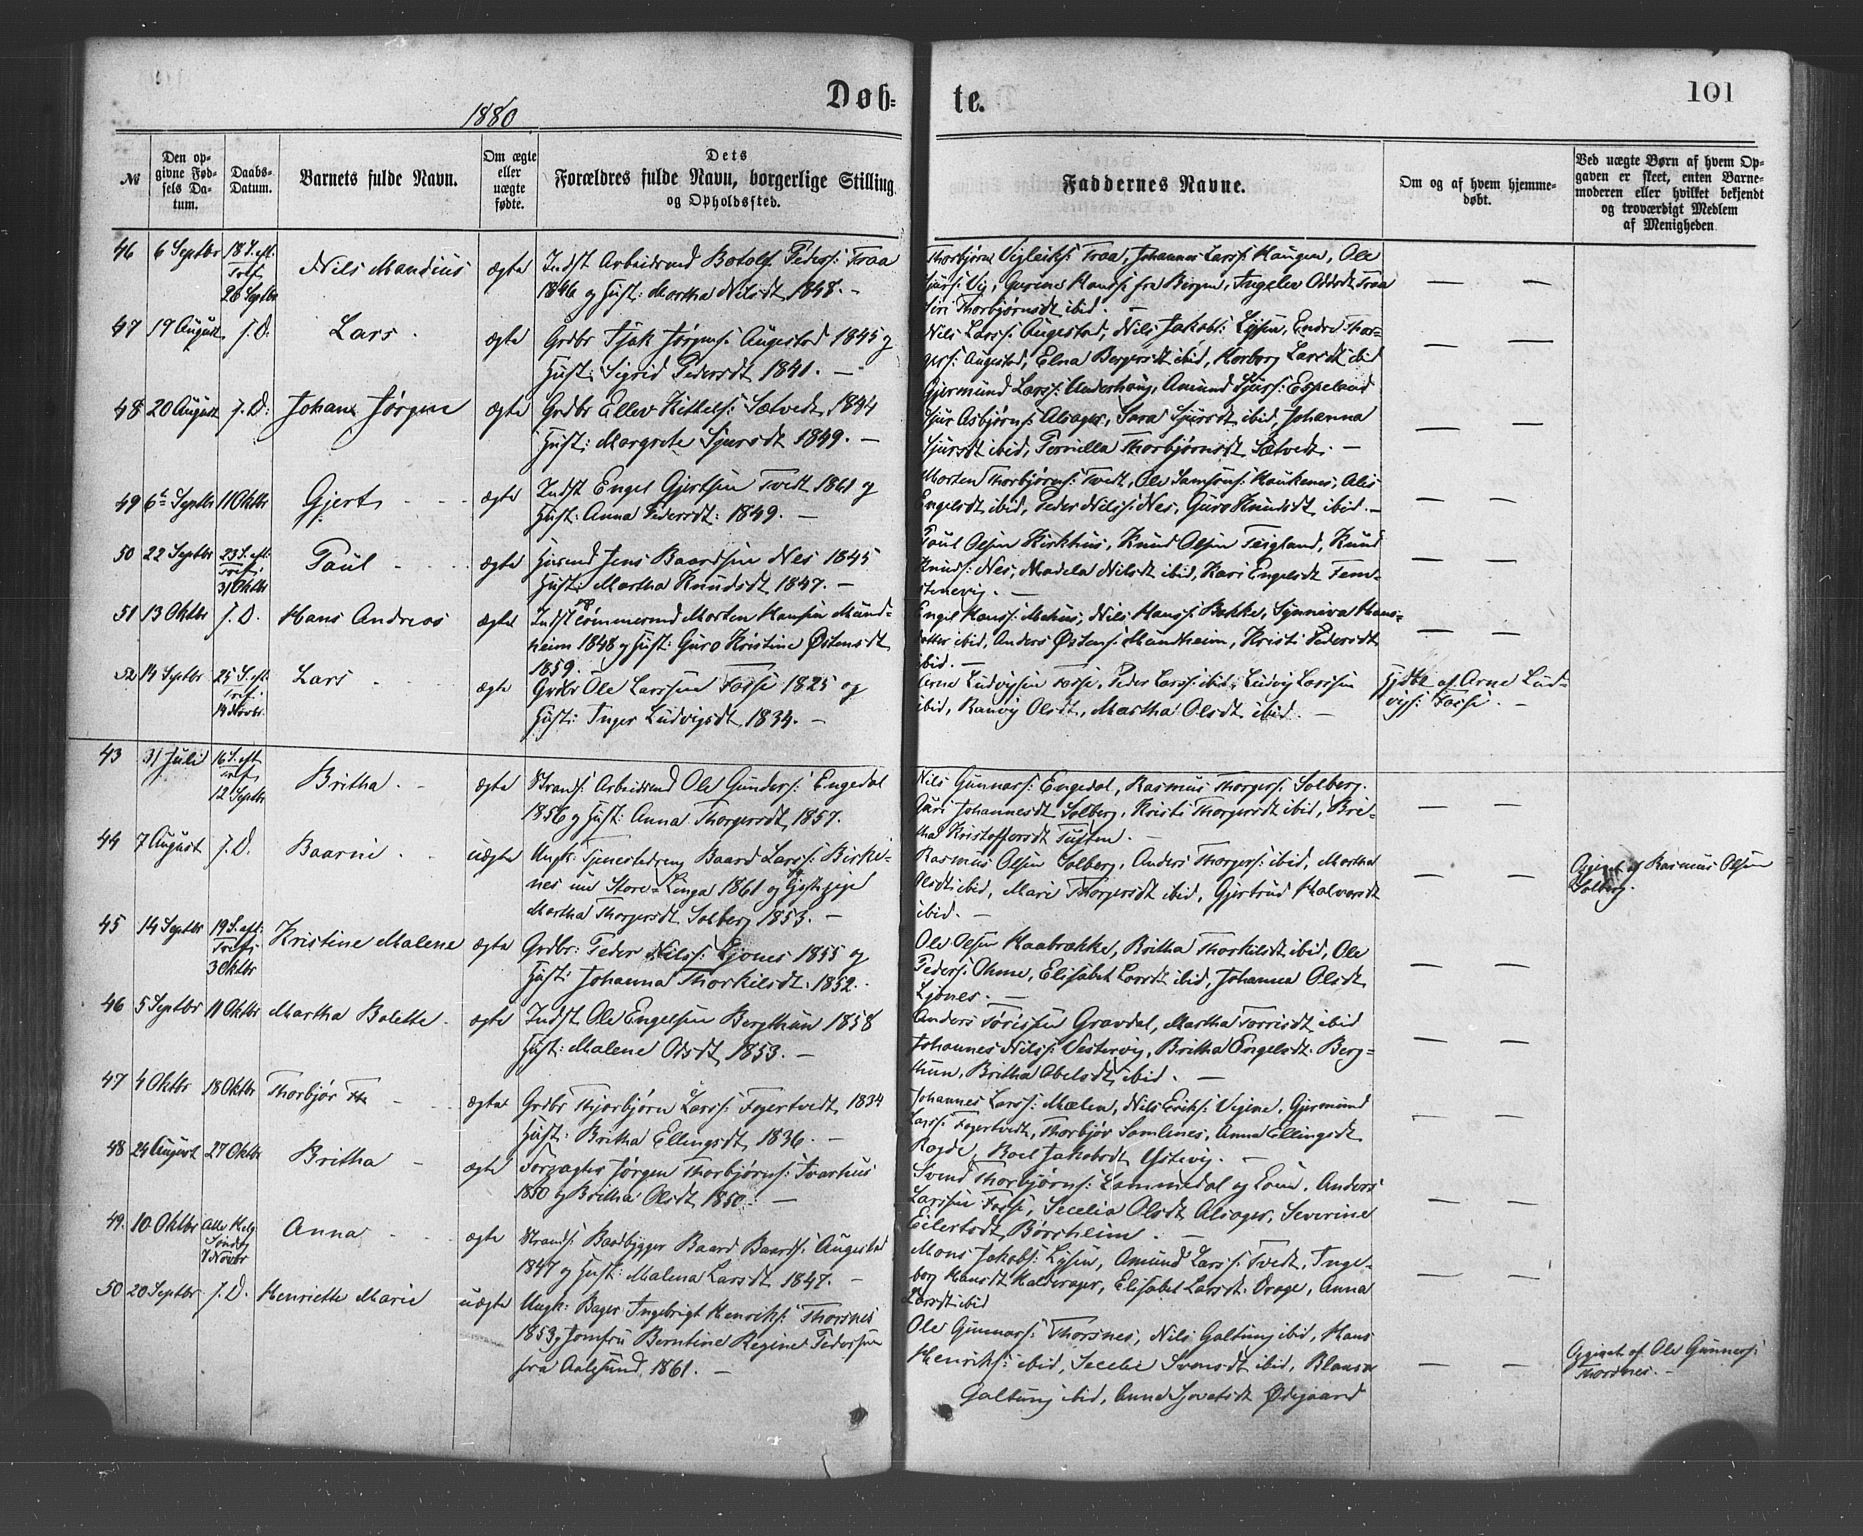 1880
Døb=
te.
101
№
Den op-
givne Fød-
sels Da-
tum.
Daabs-
Datum.
Barnets fulde Navn.
Om ægte
eller
uægte
fødte.
Dets
Forældres fulde Navn, borgerlige Stilling
og Opholdssted.
Faddernes Navne.
Om og af hvem hjemme-
døbt.
Ved uægte Børn af hvem Op-
gaven er skeet, enten Barne-
moderen eller hvilket bekjendt
og troværdigt Medlem
af Menigheden.
46 6 Septbr 18 S. eft. Tref. 26 Septbr Nils Mandius ægte
Indst Arbeidsmd Botolf Peders: Traa
1846 og Hust: Martha Nilsdt 1848. —
Thorbjørn Vigleiks: Traa, Johannes Larss: Haugen, Ole
Sjurs: Vig, Gurine Hans: fra Bergen, Ingelev Oddsdt Traa
Siri Thorbjørnsdt ibid. —
47 19 August J. D. Lars ægte
Grdbr Isak Jørgens: Augestad 1845 og
Hust: Sigrid Pedersdt 1841. —
Nils Larss: Augestad, Nils Jakobs: Lysen, Endre Thor-
gers: Augestad, Elna Bergersdt ibid, Horborg Larsdt ibid
48 20 August J. D. Johan Jørgen ægte
Grdbr Ellev Kittels: Sætvedt 1844
Hust: Margrete Sjursdt 1849. —
Gjermund Larss: Underhaug, Amund Sjurs: Espeland
Sjur Asbjørns: Alsager, Sara Sjursdt ibid, Johanna
Sjursdt ibid, Pernilla Thorbjørnsdt Sætvedt. —
49 6te Septbr 11 Oktbr Gjert ægte
Indst Engel Gjertsen Tvedt 1861 og
Hust: Anna Pedersdt: 1849. —
Morten Thorbjørns: Tvedt, Ole Samsons: Haukenes, Alis
Engelsdt ibid, Peder Nilss: Nes, Guro Knudsdt ibid. —
50 22 Septbr 23 S. eft. Tref. 31 Oktbr Paul ægte
Husmd Jens Baardsen Nes 1845
Hust: Martha Knudsdt 1847. —
Paul Olsen Kirkhus, Knud Olsen Teigland, Knud
Knuds: Nes, Madela Nilsdt ibid, Kari Engelsdt Tem-
stenevig. —
51 13 Oktbr J. D. Hans Andreas ægte
Indst Tømmermd Morten Hansen Mund-
heim 1848 og Hust: Guro Kristine Østensdt
1859. —
Engel Hanss: Mehus, Nils Hanss: Bakke, Synneva Hans-
datter ibid, Anders Østens: Mundheim, Kristi Pedersdt
ibid. —
52 14 Septbr 25 S. eft. Tref. 14 Novbr. Lars ægte
Grdbr Ole Larssen Fosse 1825 og
Hust: Inger Ludvigsdt 1834. —
Arne Ludvigsen Fosse, Peder Larss: ibid, Ludvig Larssen
ibid, Ranvig Olsdt, Martha Olsdt ibid. —
Hjdbt af Arne Lud-
vigs: Fosse. —
43 31 Juli 16 S. eft. Tref. 12 Septbr Britha ægte
Strands: Arbeidsmd Ole Gunders: Engedal
1856 og Hust: Anna Thorgersdt 1857.
Nils Gunnars: Engedal, Rasmus Thorgers: Solberg.
Guri Johannesdt Solberg, Kristi Thorgersdt ibid, Bri-
tha Kristoffersdt Tuften. —
44 7 August J. D. Baarne uægte
Ungk: Tjenestedreng Baard Larss: Birke-
nes nu Store-Linga 1861 og Gjstpige
Martha Thorgersdt Solberg 1853. —
Rasmus Olsen Solberg, Anders Thorgers: ibid, Martha
Olsdt ibid, Mari Thorgersdt ibid, Gjertrud Halvorsdt
ibid. —
Opgivet af Rasmus Olsen
Solberg.
45 14 Septbr 19 S. eft. Tref. 3 Oktbr Kristine Malene ægte
Grdbr: Peder Nilss: Ljones 1855 og
Hust: Johanna Thorkilsdt. 1852. —
Ole Olsen Kaabrække, Britha Thorkilsdt ibid, Ole
Peders: Ohme, Elisabet Larsdt ibid, Johanna Olsdt
Ljones. —
46 5 Septbr 11 Oktbr Martha Bolette ægte
Indst Ole Engelsen Bergthun 1858
Hust: Malene Olsdt 1853. —
Anders Torissen Gravdal, Martha Torrisdt ibid
Johannes Nilss: Vestervig, Britha Engelsdt. Berg-
thun, Britha Abelsdt ibid. —
47 4 Oktbr 18 Oktbr Thorbjør ægte
Grdbr Thjorbjørn Larss: Fogertvedt 1834
Hust: Britha Ellingsdt 1836. —
Johannes Larss: Mælen, Nils Eriks: Vigene, Gjermund
Larss: Fogertvedt, Thorbjør Samlenes, Anna Ellingsdt
Rogde, Boel Jakobsdt Ystevig. —
48 24 August 27 Oktbr Britha ægte
Forpagter Jørgen Thorbjørns: Svarhus
1850 og Britha Olsdt 1850. —
Svend Thorbjørns: Lammedal og Kone, Anders
Larssen Fosse, Secelia Olsdt Alsager, Severine
Eilertsdt Børsheim. —
49. 10 Oktbr Alle Helg. Søndag 7 Novbr Anna ægte
Strands: Baadbygger Baard Baards: Augestad
1847 og Hust: Malena Larsdt 1847. —
Mons Jakobs: Lysen, Amund Larss: Tvedt, Inge-
borg Hansdt Halderager, Elisabet Larsdt. Drage, Anna
Larsdt ibid
50 20 Septbr J. D. Henriette Marie uægte
Ungk: Bager Ingebrigt Henriks: Thorsnes
1853 og Jomfru Berntine Regine Pedersen
fra Aalesund, 1861. —
Ole Gunnars: Thorsnes, Nils Galtung ibid, Hans
Henriks: ibid, Secelie Svensdt ibid, Blansa
Galtung ibid, Anna Sjovatsdt Ødegaard
Opgivet af Ole Gunners:
Thorsnes. —